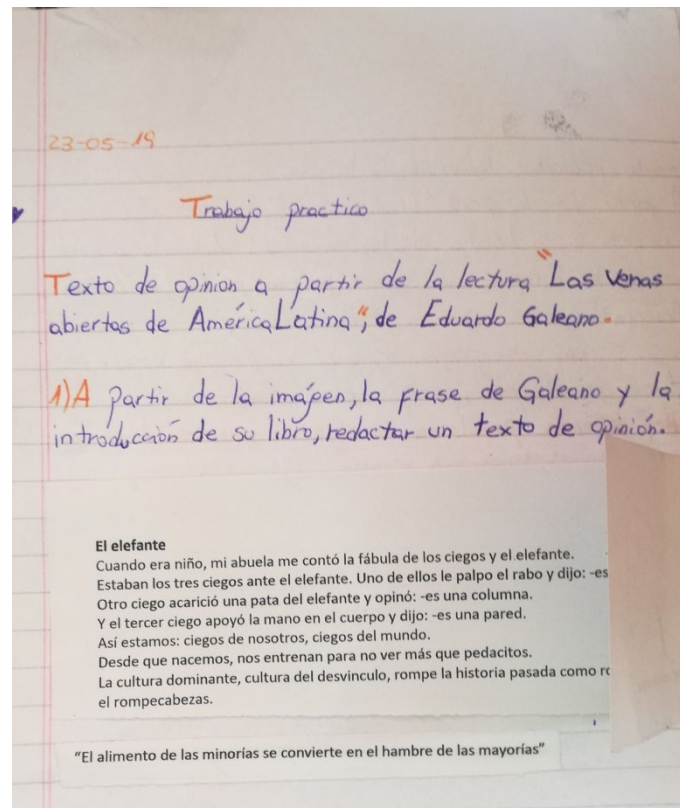 23-05-19
Trabajo practico
Texto de opinion a partir de la lectura "Las Venas
abiertas de América Latina", de Eduardo Galeano.
1) A partir de la imágen, la frase de Galeano y la
introducción de su libro, redactar un texto de opinión.
El elefante
Cuando era niño, mi abuela me contó la fábula de los ciegos y el elefante.
Estaban los tres ciegos ante el elefante. Uno de ellos le palpo el rabo y dijo: -es
Otro ciego acarició una pata del elefante y opinó: -es una columna.
Y el tercer ciego apoyó la mano en el cuerpo y dijo: -es una pared.
Así estamos: ciegos de nosotros, ciegos del mundo.
Desde que nacemos, nos entrenan para no ver más que pedacitos.
La cultura dominante, cultura del desvinculo, rompe la historia pasada como
el rompecabezas.
"El alimento de las minorías se convierte en el hambre de las mayorías"